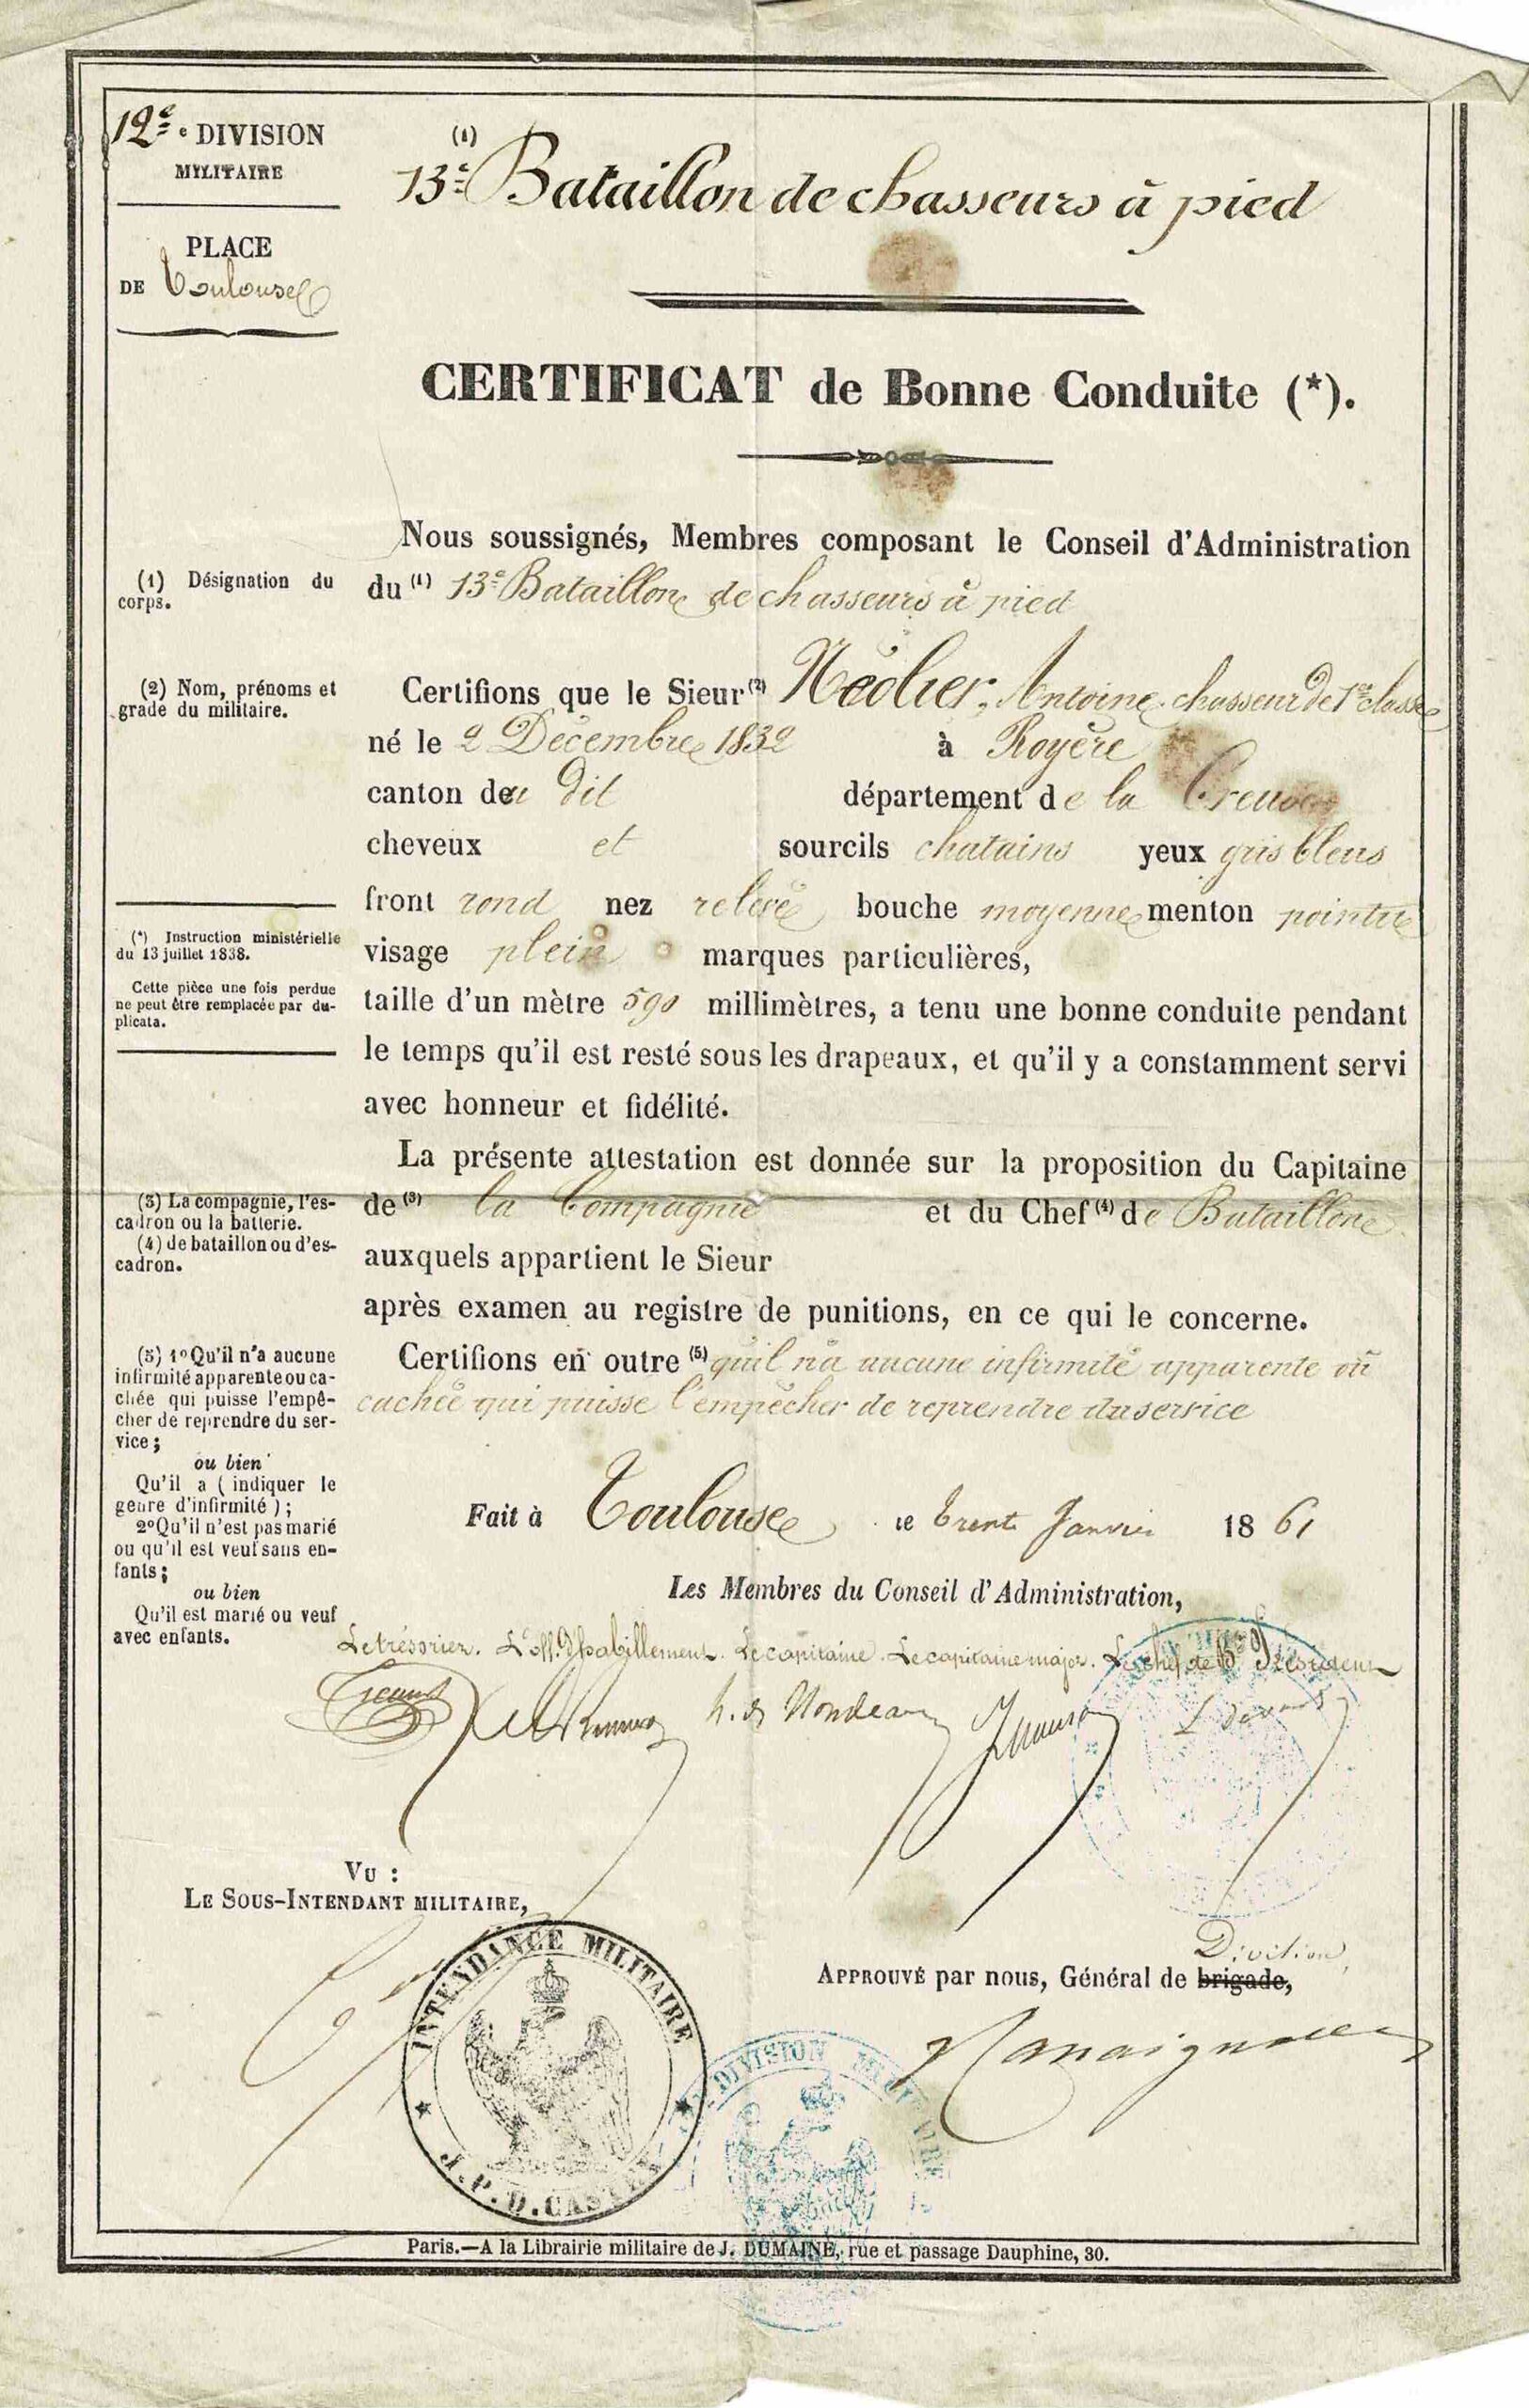 12e e DIVISION
MILITAIRE
PLACE
DE Toulouse
(1)
13e Bataillon de chasseurs à pied
CERTIFICAT de Bonne Conduite (*).
Nous soussignés, Membres composant le Conseil d'Administration
du (1) 13e Bataillon de chasseurs à pied
(1) Désignation du
corps.
Certifions que le Sieur (2) Antoine chasseur de 1re classe
(2) Nom, prénoms et
grade du militaire.
né le 2 Décembre 1832 à Royère
canton du dit département de la Creuse
cheveux et sourcils chatains yeux gris bleus
front rond nez relevé bouche moyenne menton pointu
visage plein marques particulières,
(*) Instruction ministérielle
du 13 juillet 1838.
Cette pièce une fois perdue
ne peut être remplacée par du-
plicata.
taille d'un mètre 590 millimètres, a tenu une bonne conduite pendant
le temps qu'il est resté sous les drapeaux, et qu'il y a constamment servi
avec honneur et fidélité.
La présente attestation est donnée sur la proposition du Capitaine
de (3) la Compagnie et du Chef (4) de Bataillon
auxquels appartient le Sieur
après examen au registre de punitions, en ce qui le concerne.
(3) La compagnie, l'es-
cadron ou la batterie.
(4) de bataillon ou d'es-
cadron.
Certifions en outre (5) qu'il n'a aucune infirmité apparente ou
cachée qui puisse l'empêcher de reprendre du service
(5) 1° Qu'il n'a aucune
infirmité apparente ou ca-
chée qui puisse l'empê-
cher de reprendre du ser-
vice;
ou bien
Qu'il a (indiquer le
genre d'infirmité);
2° Qu'il n'est pas marié
ou qu'il est veuf sans en-
fants;
ou bien
Qu'il est marié ou veuf
avec enfants.
Fait à Toulouse le trente Janvier 1861
Les Membres du Conseil d'Administration,
Le trésorier. L'off. d'habillement. Le capitaine. Le capitaine major. Le chef de Bon Président
VU :
LE SOUS-INTENDANT MILITAIRE,
INTENDANCE MILITAIRE
Division
APPROUVÉ par nous, Général de brigade,
DIVISION
Paris.—A la Librairie militaire de J. DUMAINE, rue et passage Dauphine, 30.